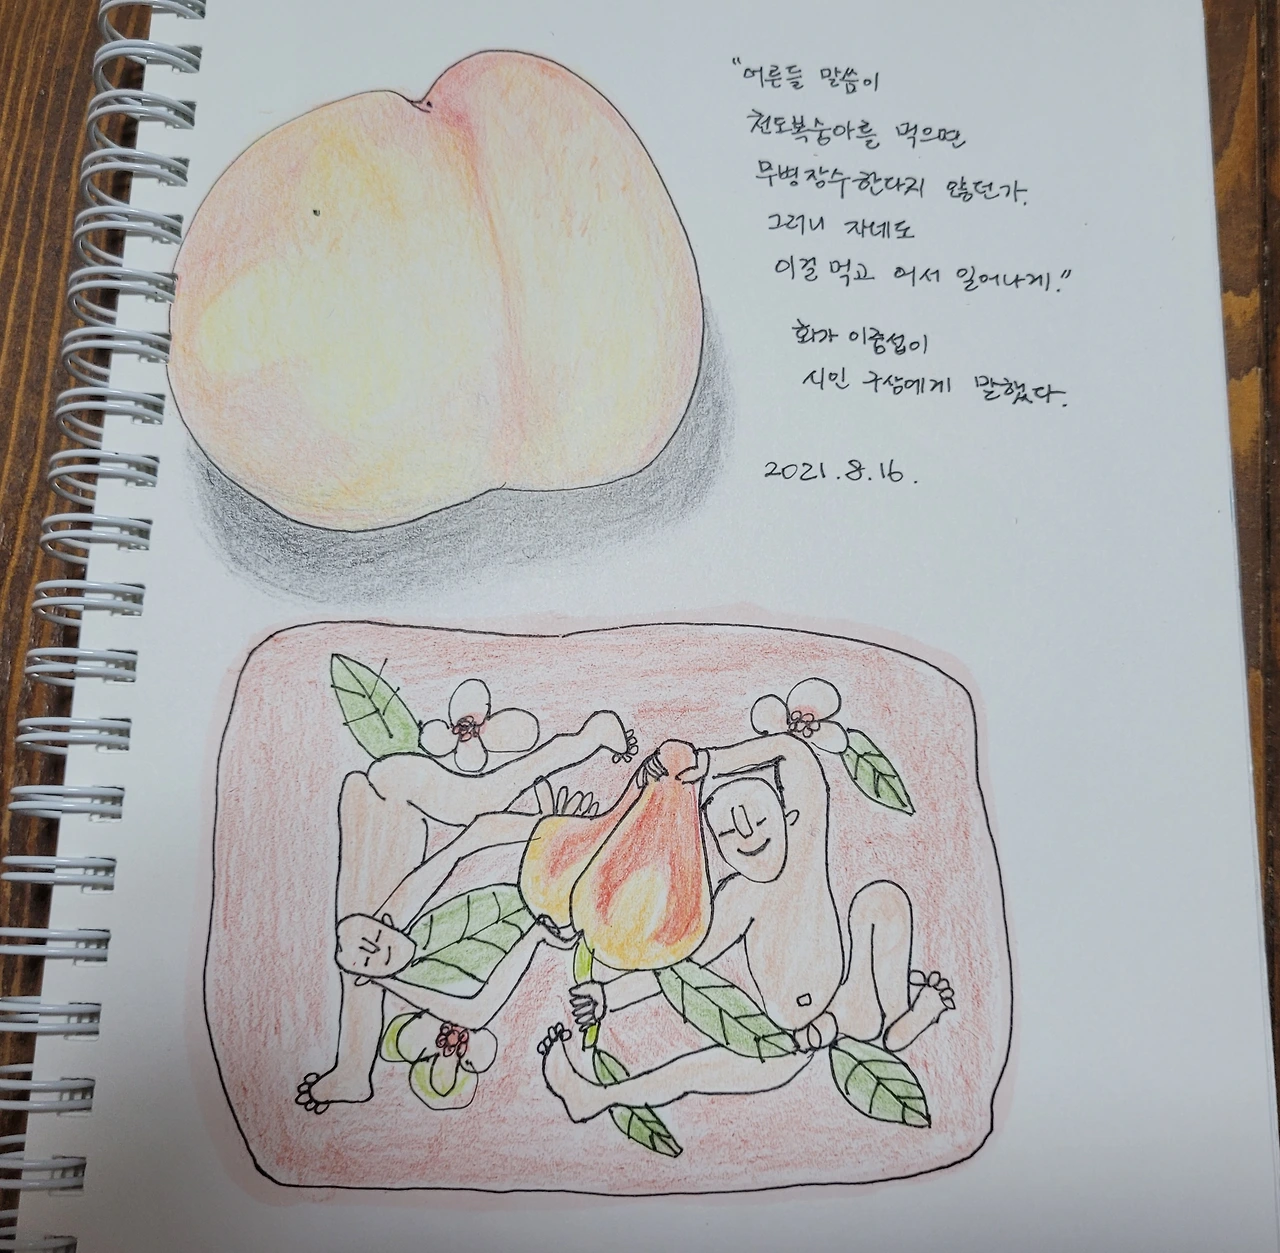 "어른들 말씀이
천도복숭아를 먹으면
무병장수한다지 않던가.
그러니 자네도
이걸 먹고 어서 일어나게."
화가 이중섭이
시인 구상에게 말했다.
2021.8.16.